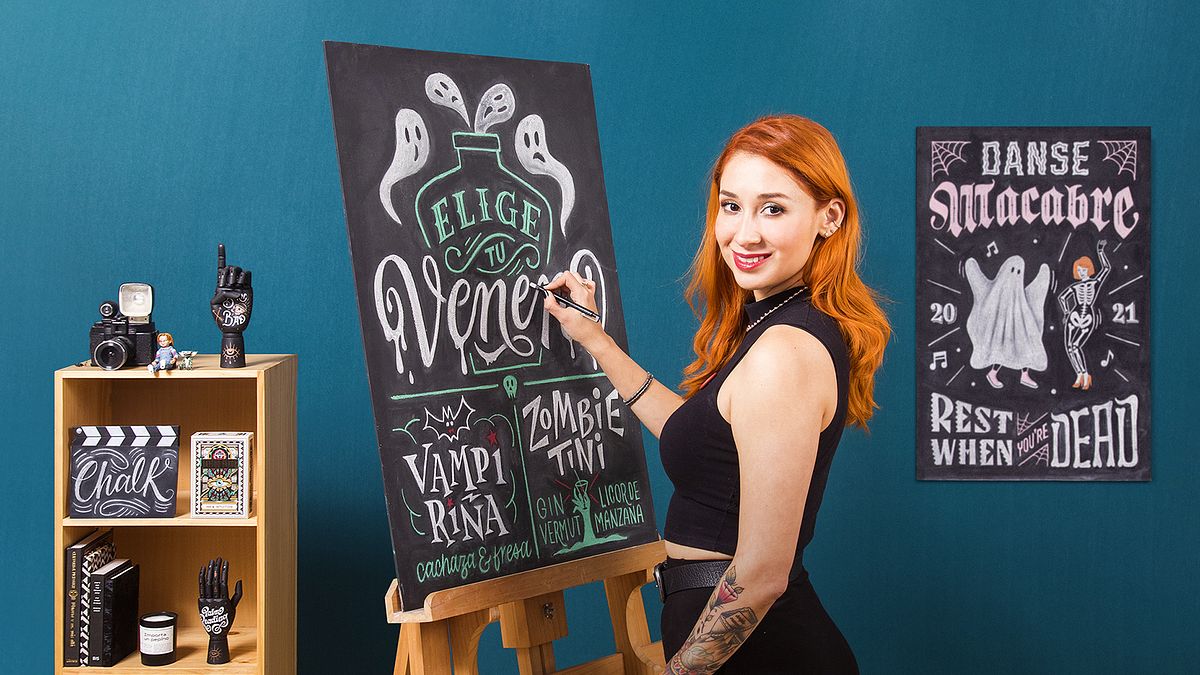 ELIGE
TU
Veneno
VAMPI
RIÑA
cachaza & fresa
ZOMBIE
TINI
GIN
VERMUT
LICOR DE
MANZANA
DANSE
Macabre
20 21
REST
WHEN
YOU'RE
DEAD
Chalk
BAD
Importa
un pepino